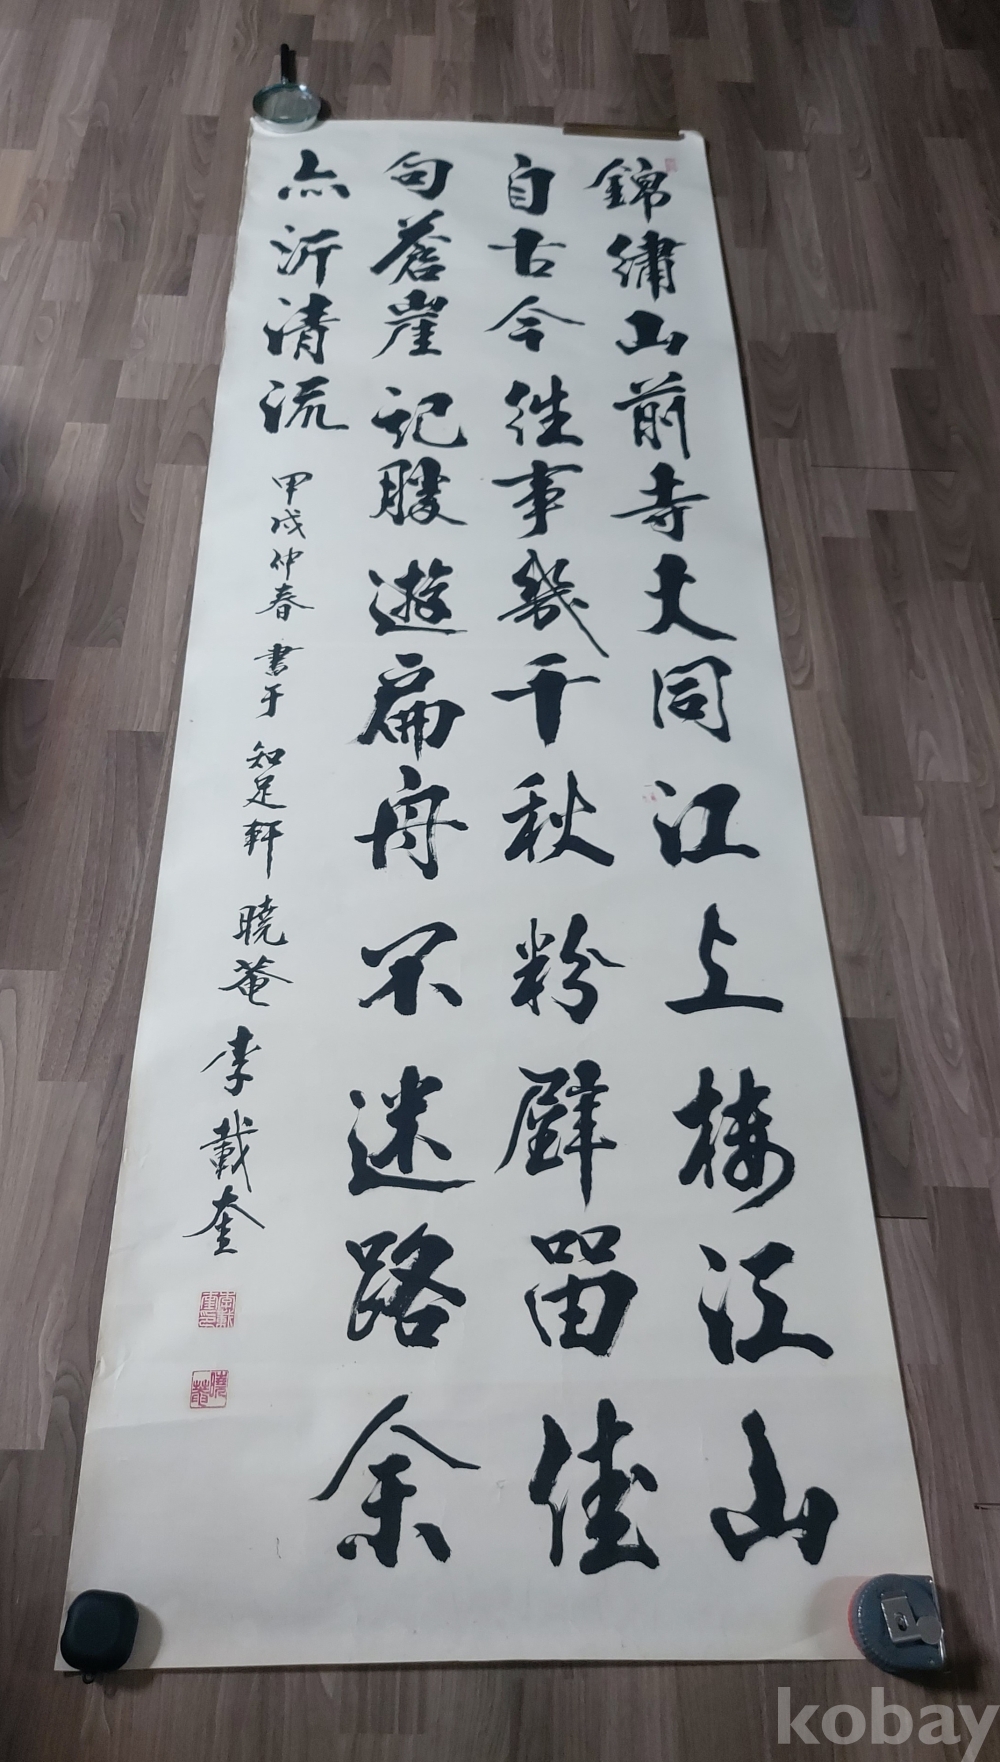 錦繡山前寺大同江上樓江山
自古今徃事幾千秋粉壁留佳
句蒼崖記勝遊扁舟不迷路余
亦泝清流
甲戌仲春書于知足軒曉菴李載奎
kobay